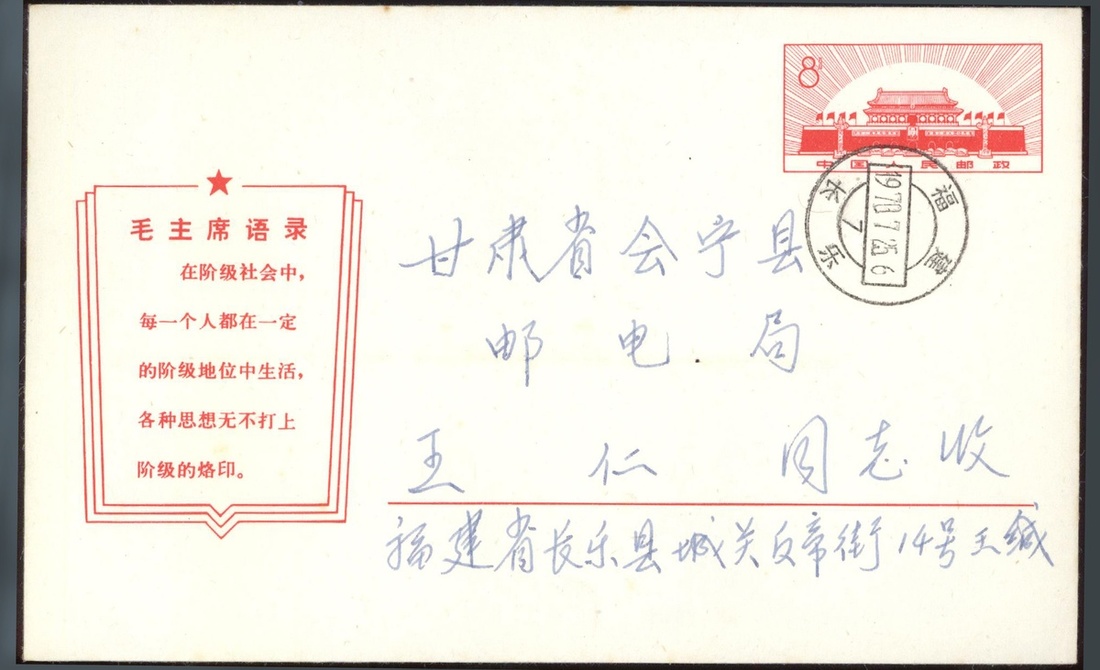 8分
中国人民邮政
福建
1970.7.25.6
长乐
7
毛主席语录
在阶级社会中，
每一个人都在一定
的阶级地位中生活，
各种思想无不打上
阶级的烙印。
甘肃省会宁县
邮电局
王仁同志收
福建省长乐县城关反帝街14号王缄